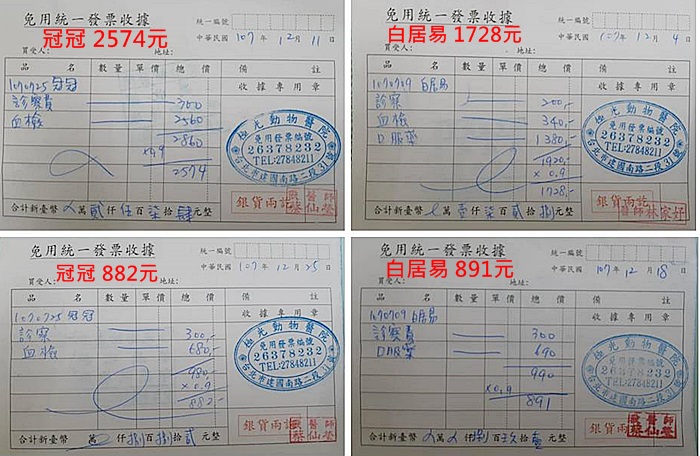 免用統一發票收據
冠冠 2574元
統一編號
中華民國 107年 12月 11日
買受人: 地址:
品名 數量 單價 總價 備註
收據專用章
1070725 冠冠
診察費 300
血檢 2560
2860
×0.9
2574
極光動物醫院
免用發票編號
26378232
TEL:27848211
台北市建國南路二段31號
銀貨兩訖
合計新臺幣 萬 貳 仟 伍 百 柒 拾 肆 元整
免用統一發票收據
白居易 1728元
統一編號
中華民國 107年 12月 4日
買受人: 地址:
品名 數量 單價 總價 備註
收據專用章
1070709 白居易
診察 200,-
血檢 340,-
口服藥 1380,-
1920,-
× 0.9
1728,-
極光動物醫院
免用發票編號
26378232
TEL:27848211
台北市建國南路二段31號
銀貨兩訖
醫師林家好
合計新臺幣 萬 壹 仟 柒 百 貳 拾 捌 元整
免用統一發票收據
冠冠 882元
統一編號
中華民國 107年 12月 25日
買受人: 地址:
品名 數量 單價 總價 備註
收據專用章
1070725 冠冠
診察 300,-
血檢 680,-
980,-
×0.9
882,-
極光動物醫院
免用發票編號
26378232
TEL:27848211
台北市建國南路二段31號
銀貨兩訖
合計新臺幣 萬 仟 捌 百 捌 拾 貳 元整
免用統一發票收據
白居易 891元
統一編號
中華民國 107年 12月 18日
買受人: 地址:
品名 數量 單價 總價 備註
收據專用章
1070709 白居易
診察費 300
口服藥 690
990
×0.9
891
極光動物醫院
免用發票編號
26378232
TEL:27848211
台北市建國南路二段31號
銀貨兩訖
合計新臺幣 萬 仟 捌 百 玖 拾 壹 元整